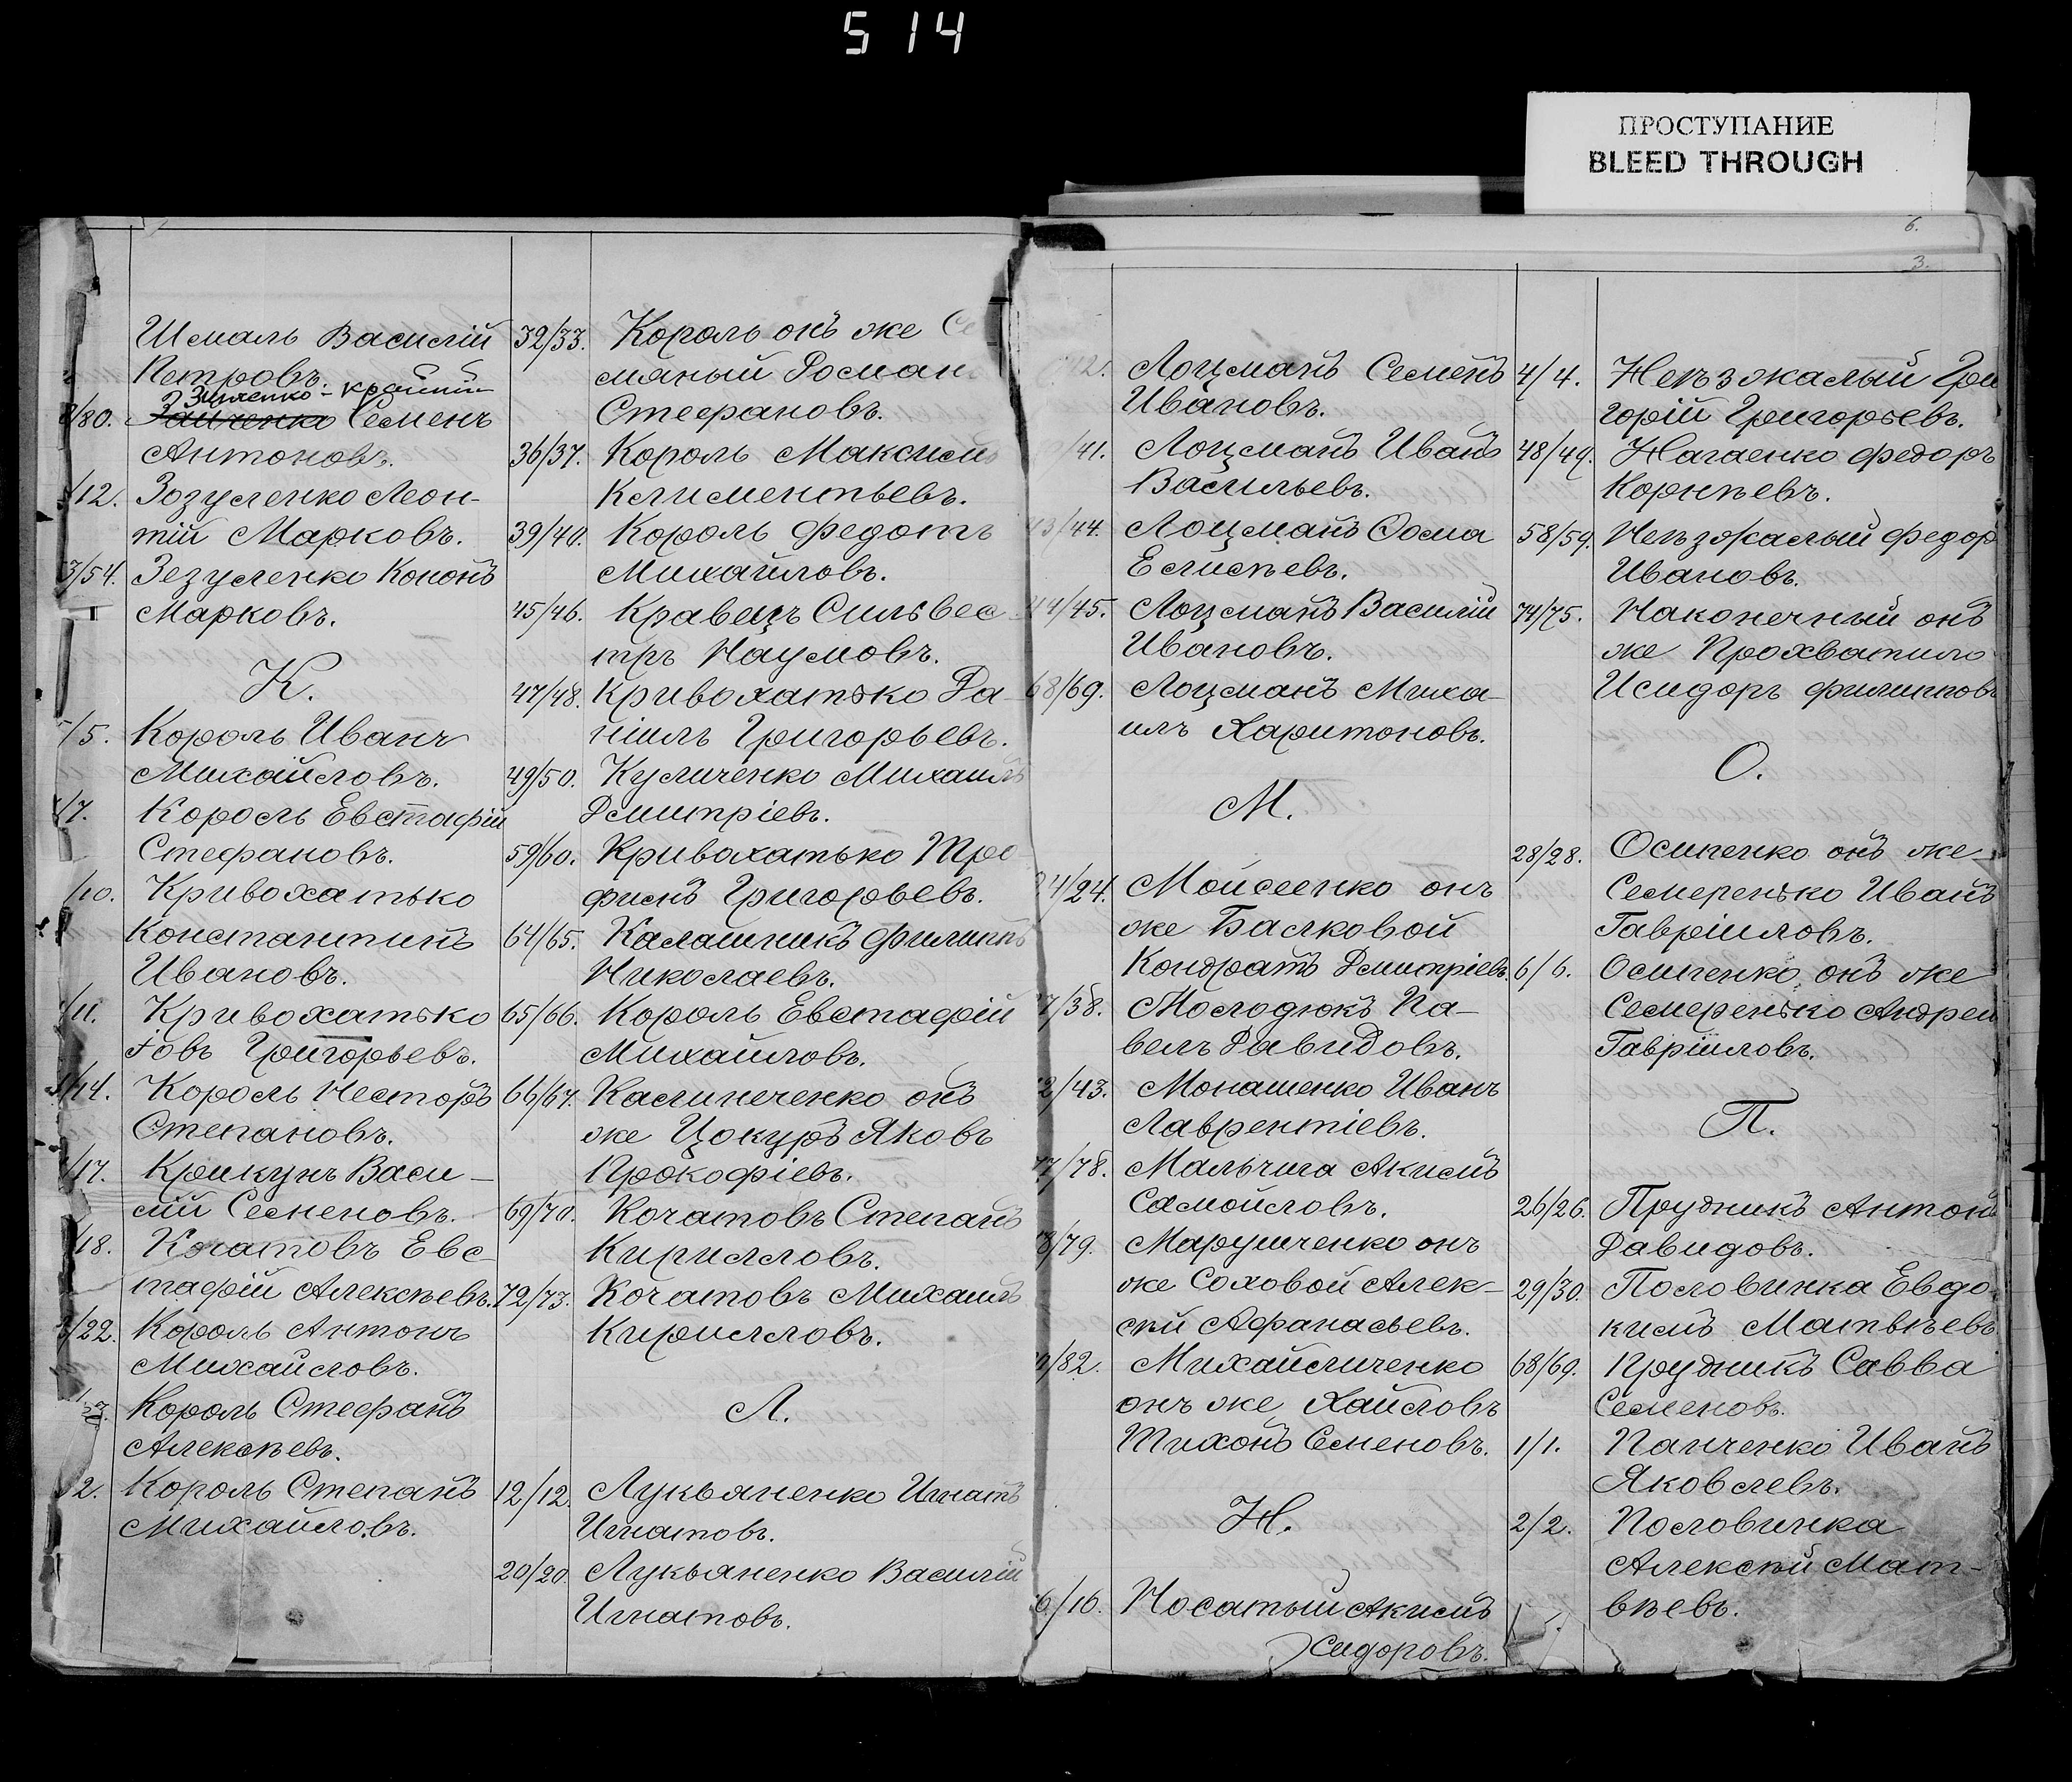 514
ПРОСТУПАНИЕ
BLEED THROUGH
6.
3.
Шмаль Василій
Петровъ.
Зинченко - крайній
/80. Заиченко Семенъ
Антоновъ.
/12. Зозуленко Леон-
тій Марковъ.
3/54. Зезуленко Кононъ
Марковъ.
К.
/5. Король Иванъ
Михайловъ.
/7. Король Евстафій
Стефановъ.
/10. Кривохатько
Константинъ
Ивановъ.
/11. Кривохатько
Іовъ Григорьевъ.
/14. Король Несторъ
Степановъ.
/17. Крикунъ Васи-
лій Семеновъ.
/18. Кочатовъ Евс-
тафій Алексѣевъ.
/22. Король Антонъ
Михайловъ.
Король Стефанъ
Алексѣевъ.
2. Король Степанъ
Михайловъ.
32/33. Король онъ же Се
мяный Роман
Стефановъ.
36/37. Король Максимъ
Климентьевъ.
39/40. Король Федотъ
Михайловъ.
45/46. Кравецъ Сильвес
тръ Наумовъ.
47/48. Кривохатько Да-
ніилъ Григорьевъ.
49/50. Куличенко Михаилъ
Дмитріевъ.
59/60. Кривохатько Тро
фимъ Григорьевъ.
64/65. Калашникъ Филиппъ
Николаевъ.
65/66. Король Евстафій
Михайловъ.
66/67. Калиниченко онъ
же Цокуръ Яковъ
Прокофіевъ.
69/70. Кочатовъ Степанъ
Кирилловъ.
72/73. Кочатовъ Михаилъ
Кирилловъ.
Л.
12/12. Лукьяненко Игнатъ
Игнатовъ.
20/20. Лукьяненко Василій
Игнатовъ.
Лоцманъ Семенъ
Ивановъ.
/41. Лоцманъ Иванъ
Васильевъ.
43/44. Лоцманъ Ѳома
Елисѣевъ.
44/45. Лоцманъ Василій
Ивановъ.
68/69. Лоцманъ Миха-
илъ Харитоновъ.
М.
24/24. Моисеенко онъ
же Балковой
Кондратъ Дмитріевъ.
7/38. Молодюкъ Па-
велъ Давидовъ.
2/43. Монашенко Иванъ
Лаврентіевъ.
77/78. Мальчига Акимъ
Самойловъ.
8/79. Марущенко онъ
же Соховой Алек-
сѣй Афанасьевъ.
/82. Михайличенко
онъ же Хайловъ
Тихонъ Семеновъ.
Н.
6/16. Носатый Акимъ
Сидоровъ.
4/4. Неѣзжалый Гри
горій Григорьевъ.
48/49. Нагаенко Федоръ
Корнѣевъ.
58/59. Неѣзжалый Федор
Ивановъ.
74/75. Наконечный онъ
же Прохватило
Исидоръ Филиповъ
О.
28/28. Осипенко онъ же
Семеренько Иванъ
Гавріиловъ.
6/6. Осипенко, онъ же
Семеренько Андрей
Гавріиловъ.
П.
26/26. Прудникъ Антонъ
Давидовъ.
29/30. Половинка Евдо-
кимъ Матвѣевъ
68/69. Прудникъ Савва
Семеновъ.
1/1. Панченко Иванъ
Яковлевъ.
2/2. Половинка
Алексѣй Мат-
вѣевъ.